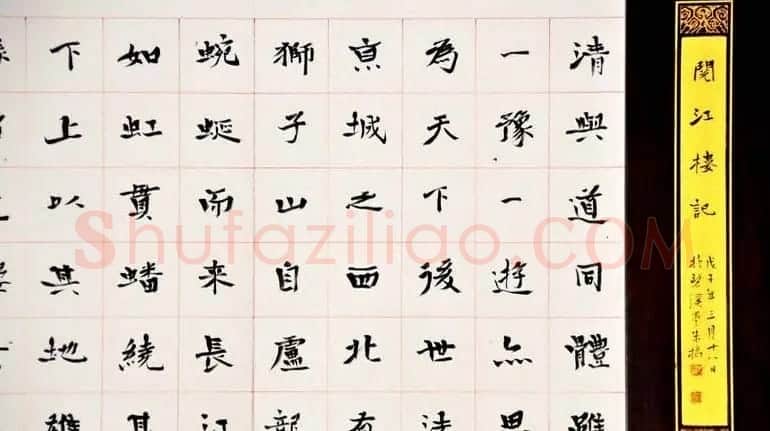 閱江樓記
戊子年三月十八日
清與道同體雖
一豫一遊亦思
為天下後世法
京城之西北有
獅子山自盧龍
蜿蜒而來長江
如虹貫蟠繞其
下上以其地雄
Shufaziliao.COM